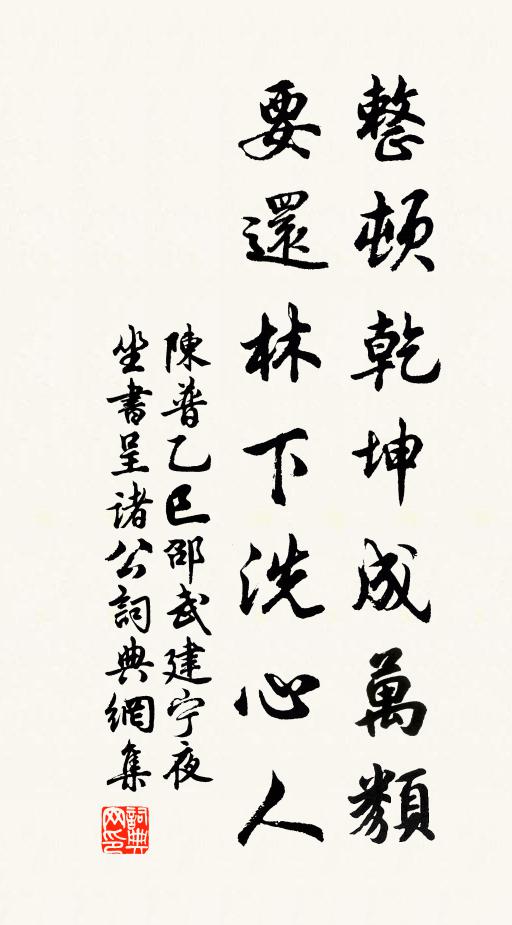 整頓乾坤成萬類
要還林下洗心人
陳普乙巳邵武建宁夜
坐書呈諸公詞典網集
詞典网印